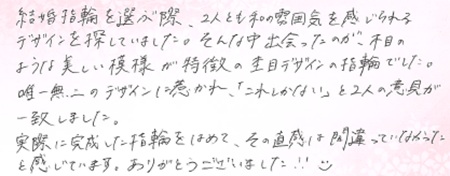 結婚指輪を選ぶ際、2人とも和の雰囲気を感じられる
デザインを探していました。そんな中出会ったのが、木目の
ような美しい模様が特徴の杢目デザインの指輪でした。
唯一無二のデザインに惹かれ、「これしかない」と2人の意見が
一致しました。
実際に完成した指輪をはめて、その直感は間違っていなかった
と感じています。ありがとうございました!!